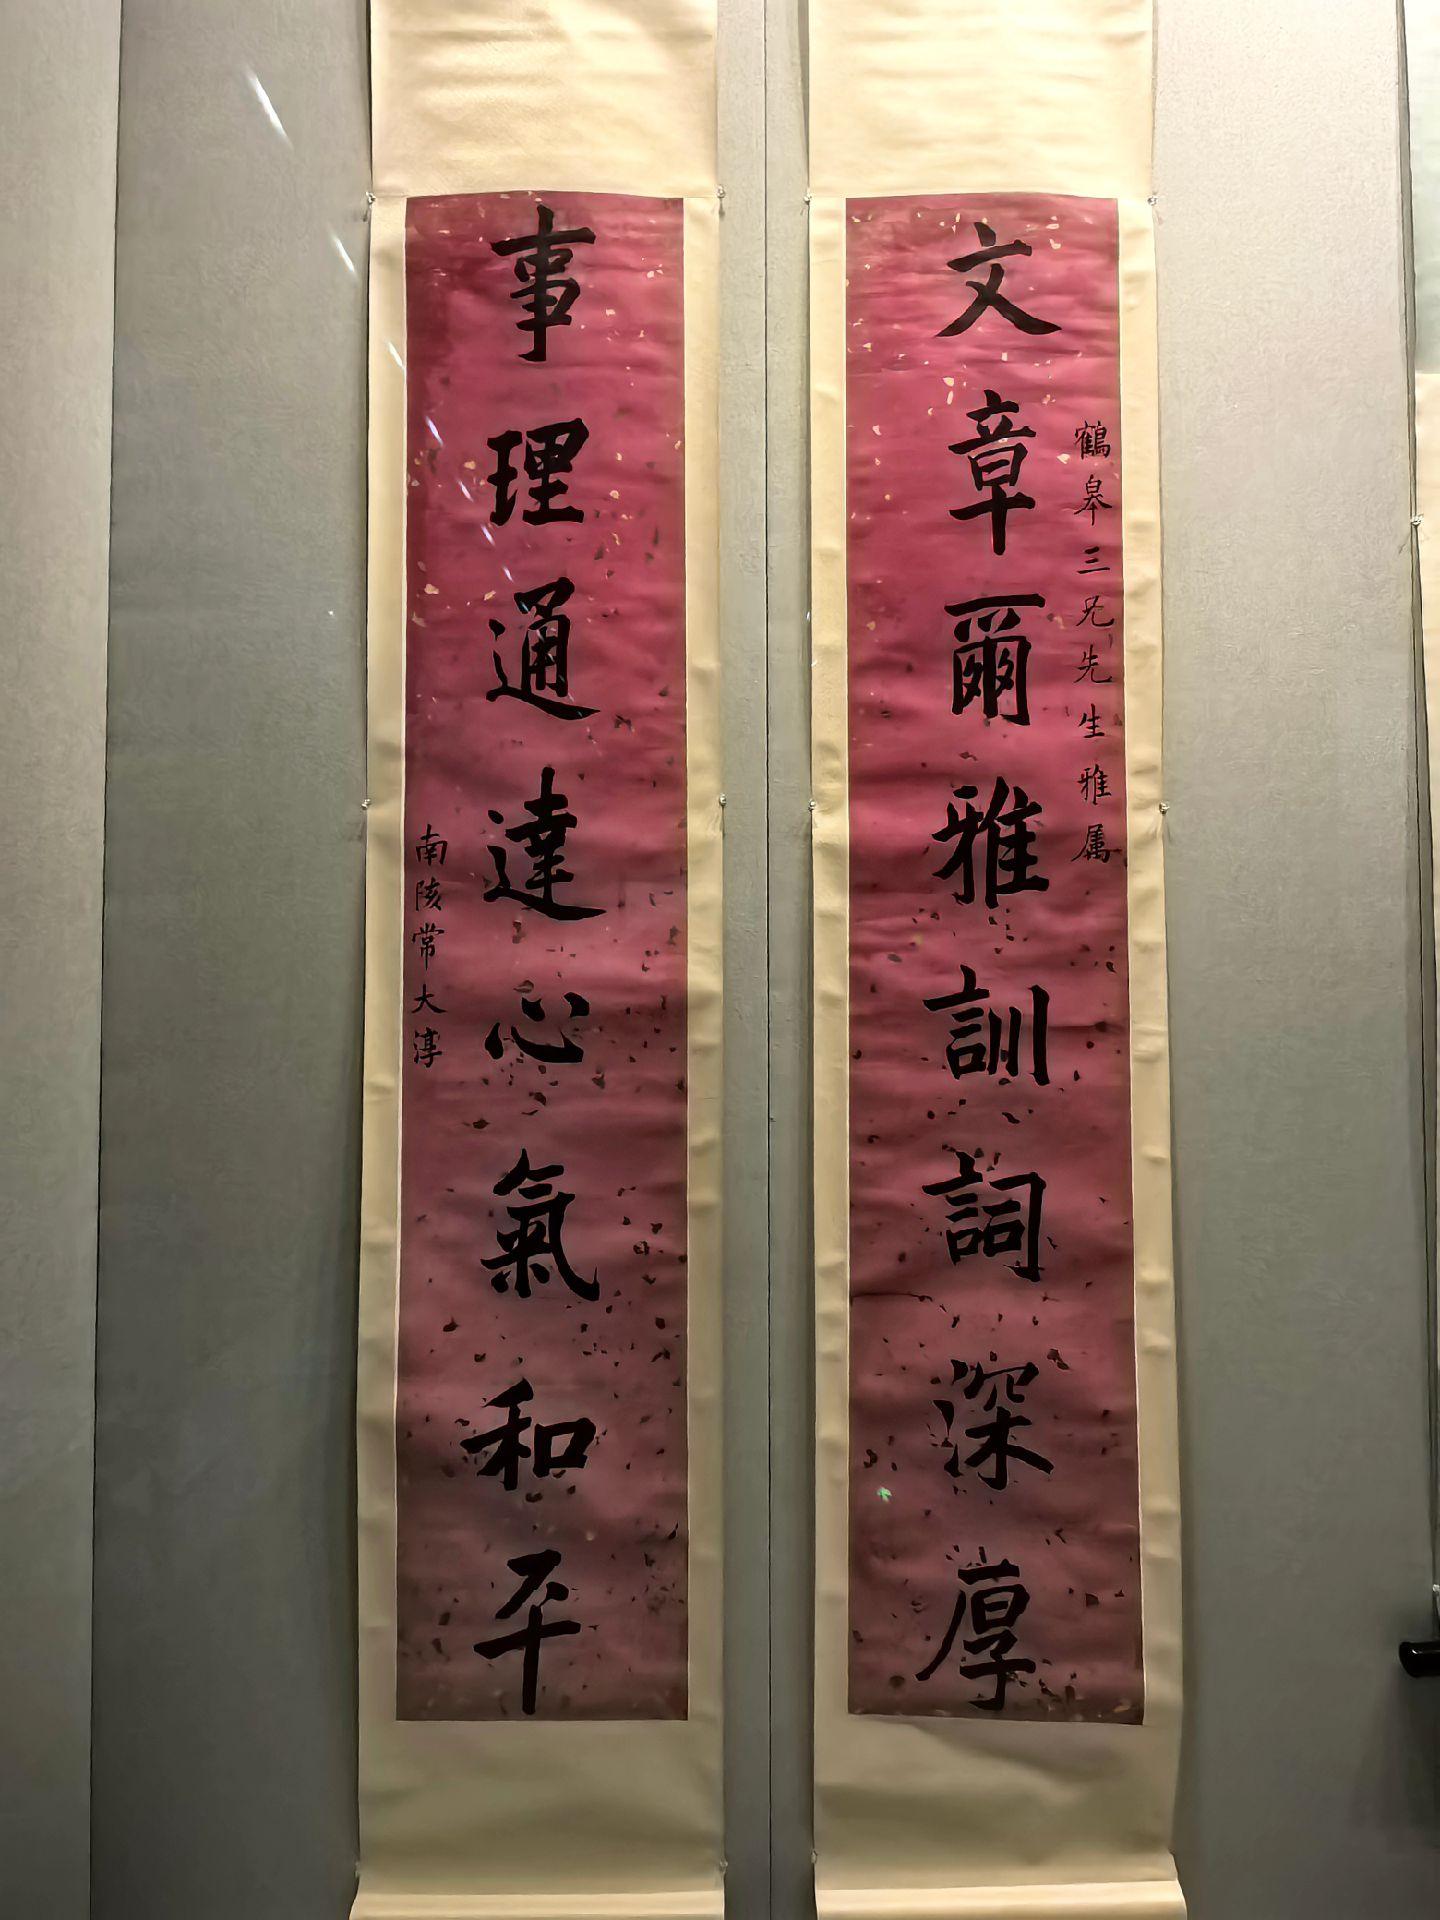 文章爾雅訓詞深厚
鶴皋三兄先生雅属
事理通達心氣和平
南陔常大淳